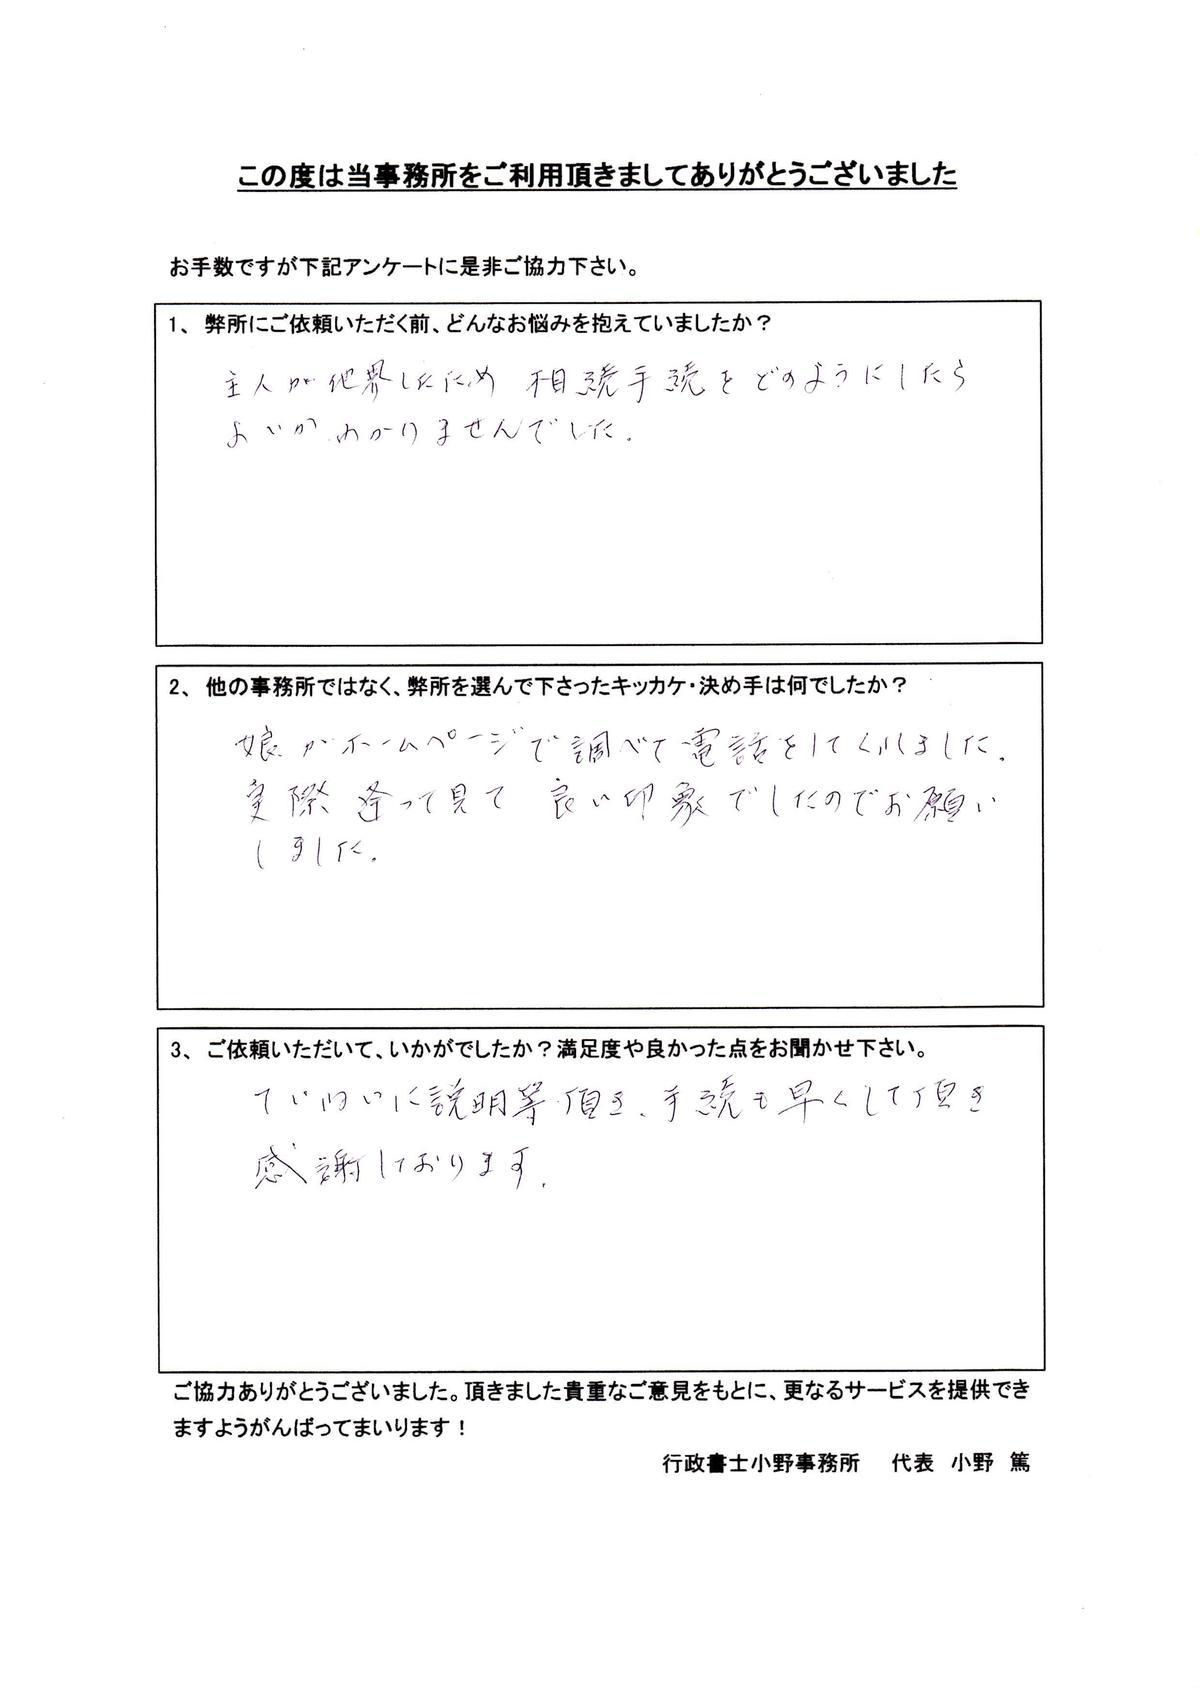 この度は当事務所をご利用頂きましてありがとうございました
お手数ですが下記アンケートに是非ご協力下さい。
1、弊所にご依頼いただく前、どんなお悩みを抱えていましたか？
主人が他界したため 相続手続をどのようにしたら
よいか わかりませんでした.
2、他の事務所ではなく、弊所を選んで下さったキッカケ・決め手は何でしたか？
娘がホームページで調べて電話をしてくれました.
実際逢って見て 良い印象でしたのでお願い
しました.
3、ご依頼いただいて、いかがでしたか？満足度や良かった点をお聞かせ下さい。
ていねいに説明等頂き、手続も早くして頂き
感謝しております.
ご協力ありがとうございました。頂きました貴重なご意見をもとに、更なるサービスを提供でき
ますようがんばってまいります！
行政書士小野事務所 代表 小野 篤